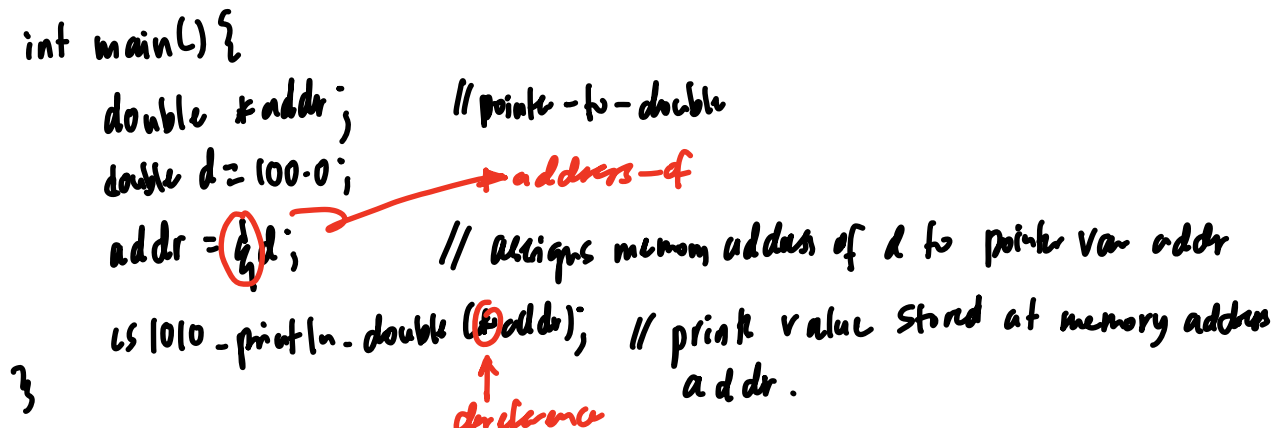 int main() {
double *addr; // pointer-to-double
double d = 100.0; address-of
addr = &d; // assigns memory address of d to pointer var addr
cs1010_println_double (*addr); // prints value stored at memory address
} addr.
dereference